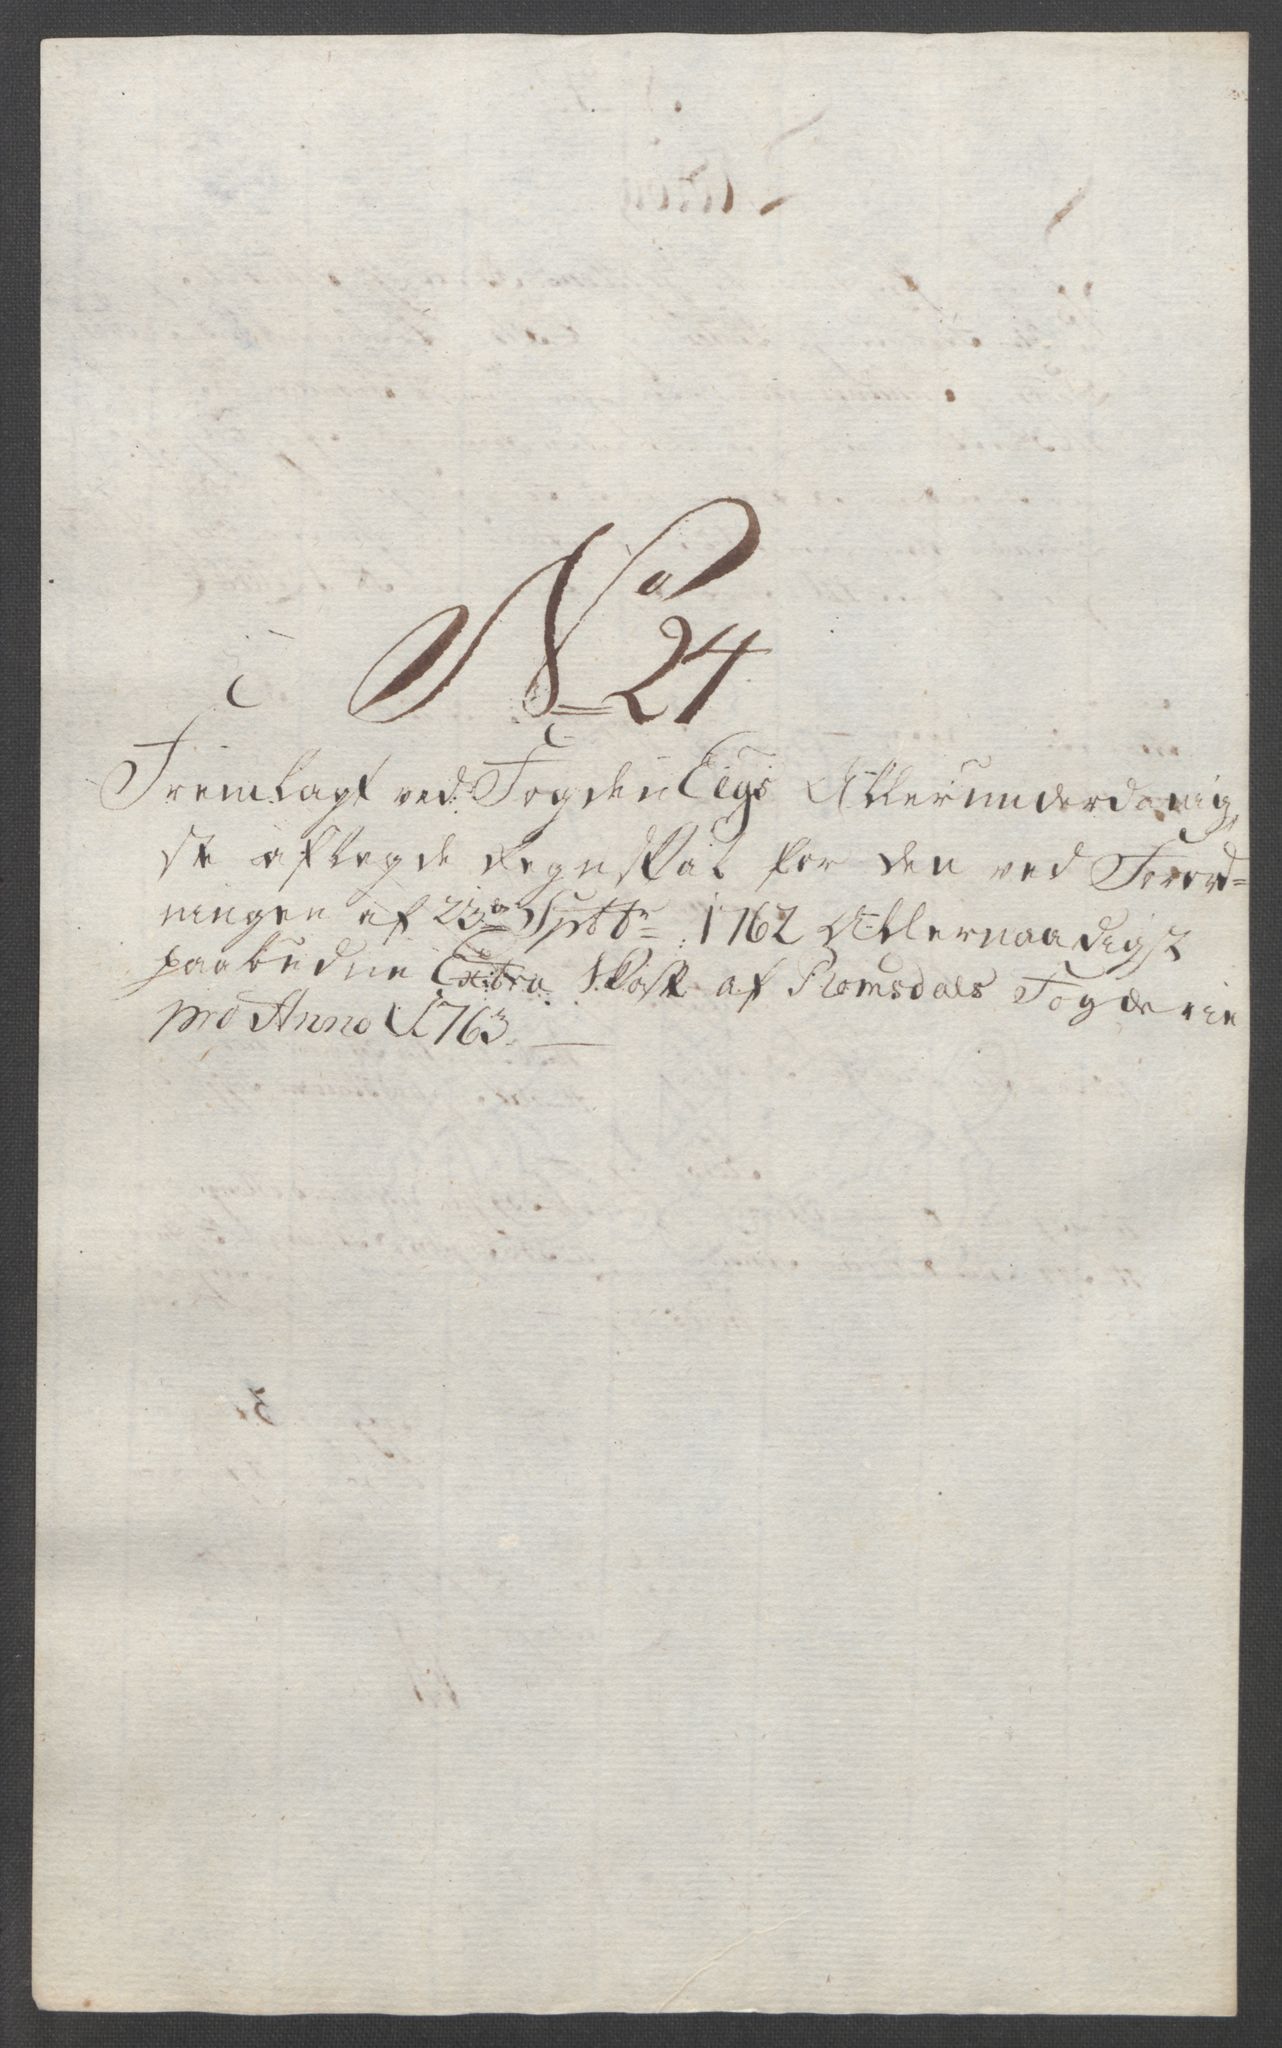 No
24
Fremlagt ved Fogden Eegs Allerunderdanig,
ste aflegde Regnskal for den ved Forord=
ningen af 23de Sptbr 1762 Allernaadigst
paabudne Extra Skatt af Romsdals Fogderie
pro Anno 1763.